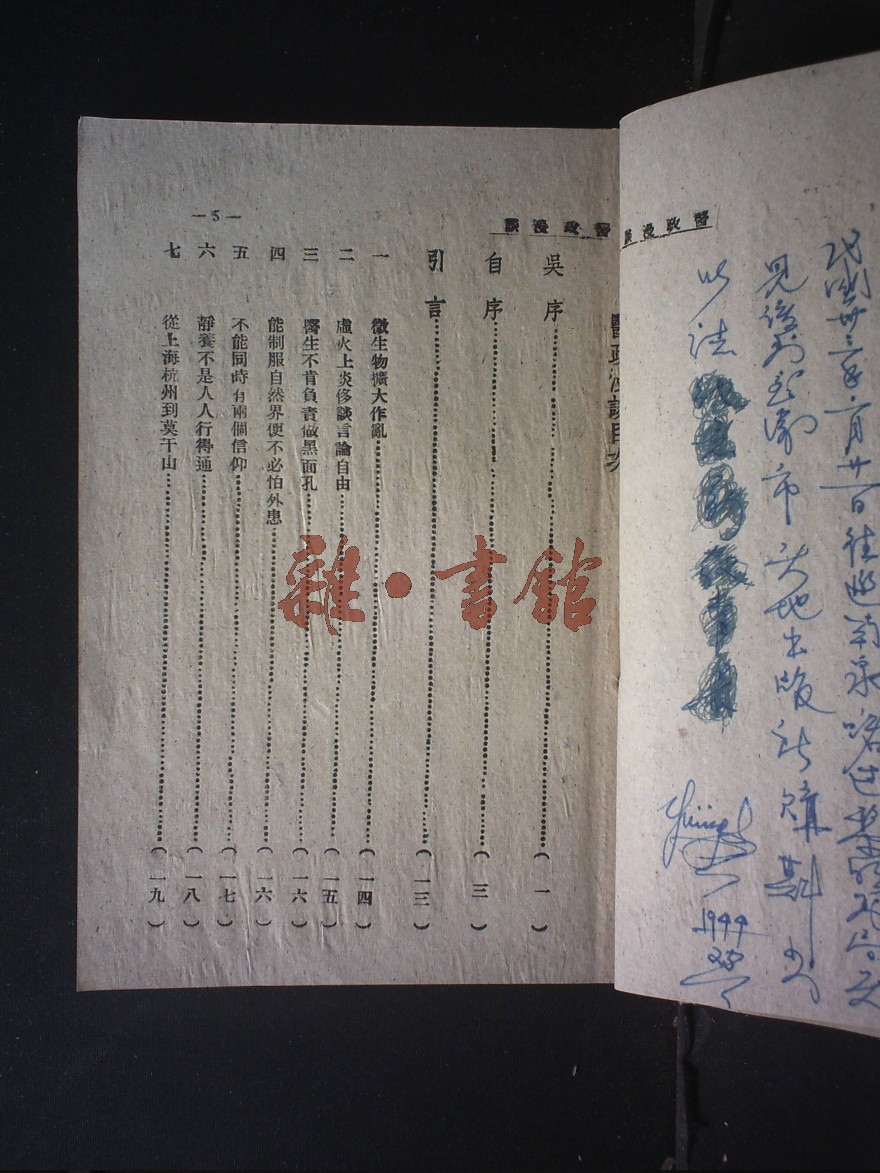 醫政漫談
民國卅三年二月廿一日往
市天地出版社購
以誌
1944
醫政漫談
醫政漫談目次
吳序……(一)
自序……(三)
引言……(一三)
一 微生物擴大作亂……(一四)
二 虛火上炎侈談言論自由……(一五)
三 醫生不肯負責做黑面孔……(一六)
四 能制服自然界便不必怕外患……(一六)
五 不能同時有兩個信仰……(一七)
六 靜養不是人人行得通……(一八)
七 從上海杭州到莫干山……(一九)
—5—
雜·書館